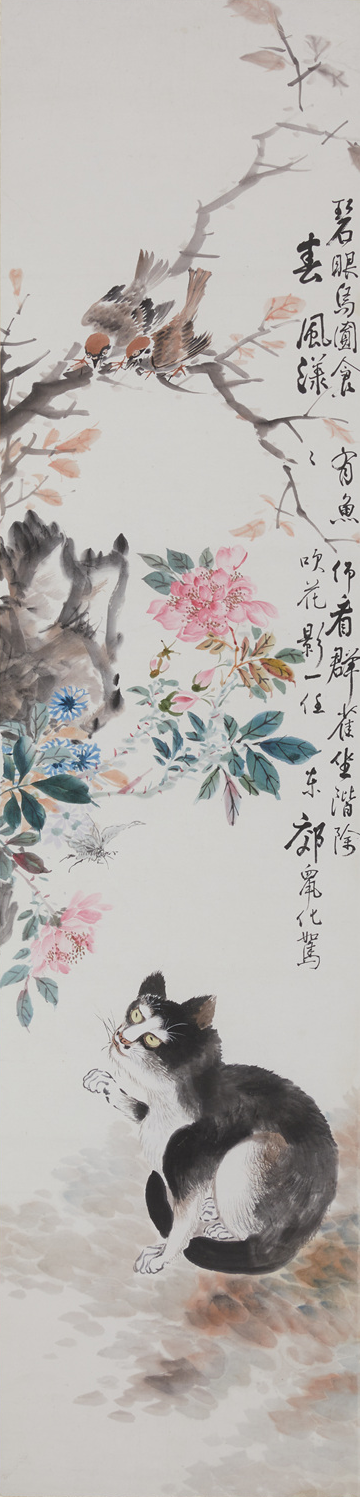 碧眼烏圓食有魚仰看群雀坐階除
春風漾〻吹花影一任东郊鼠化鴽